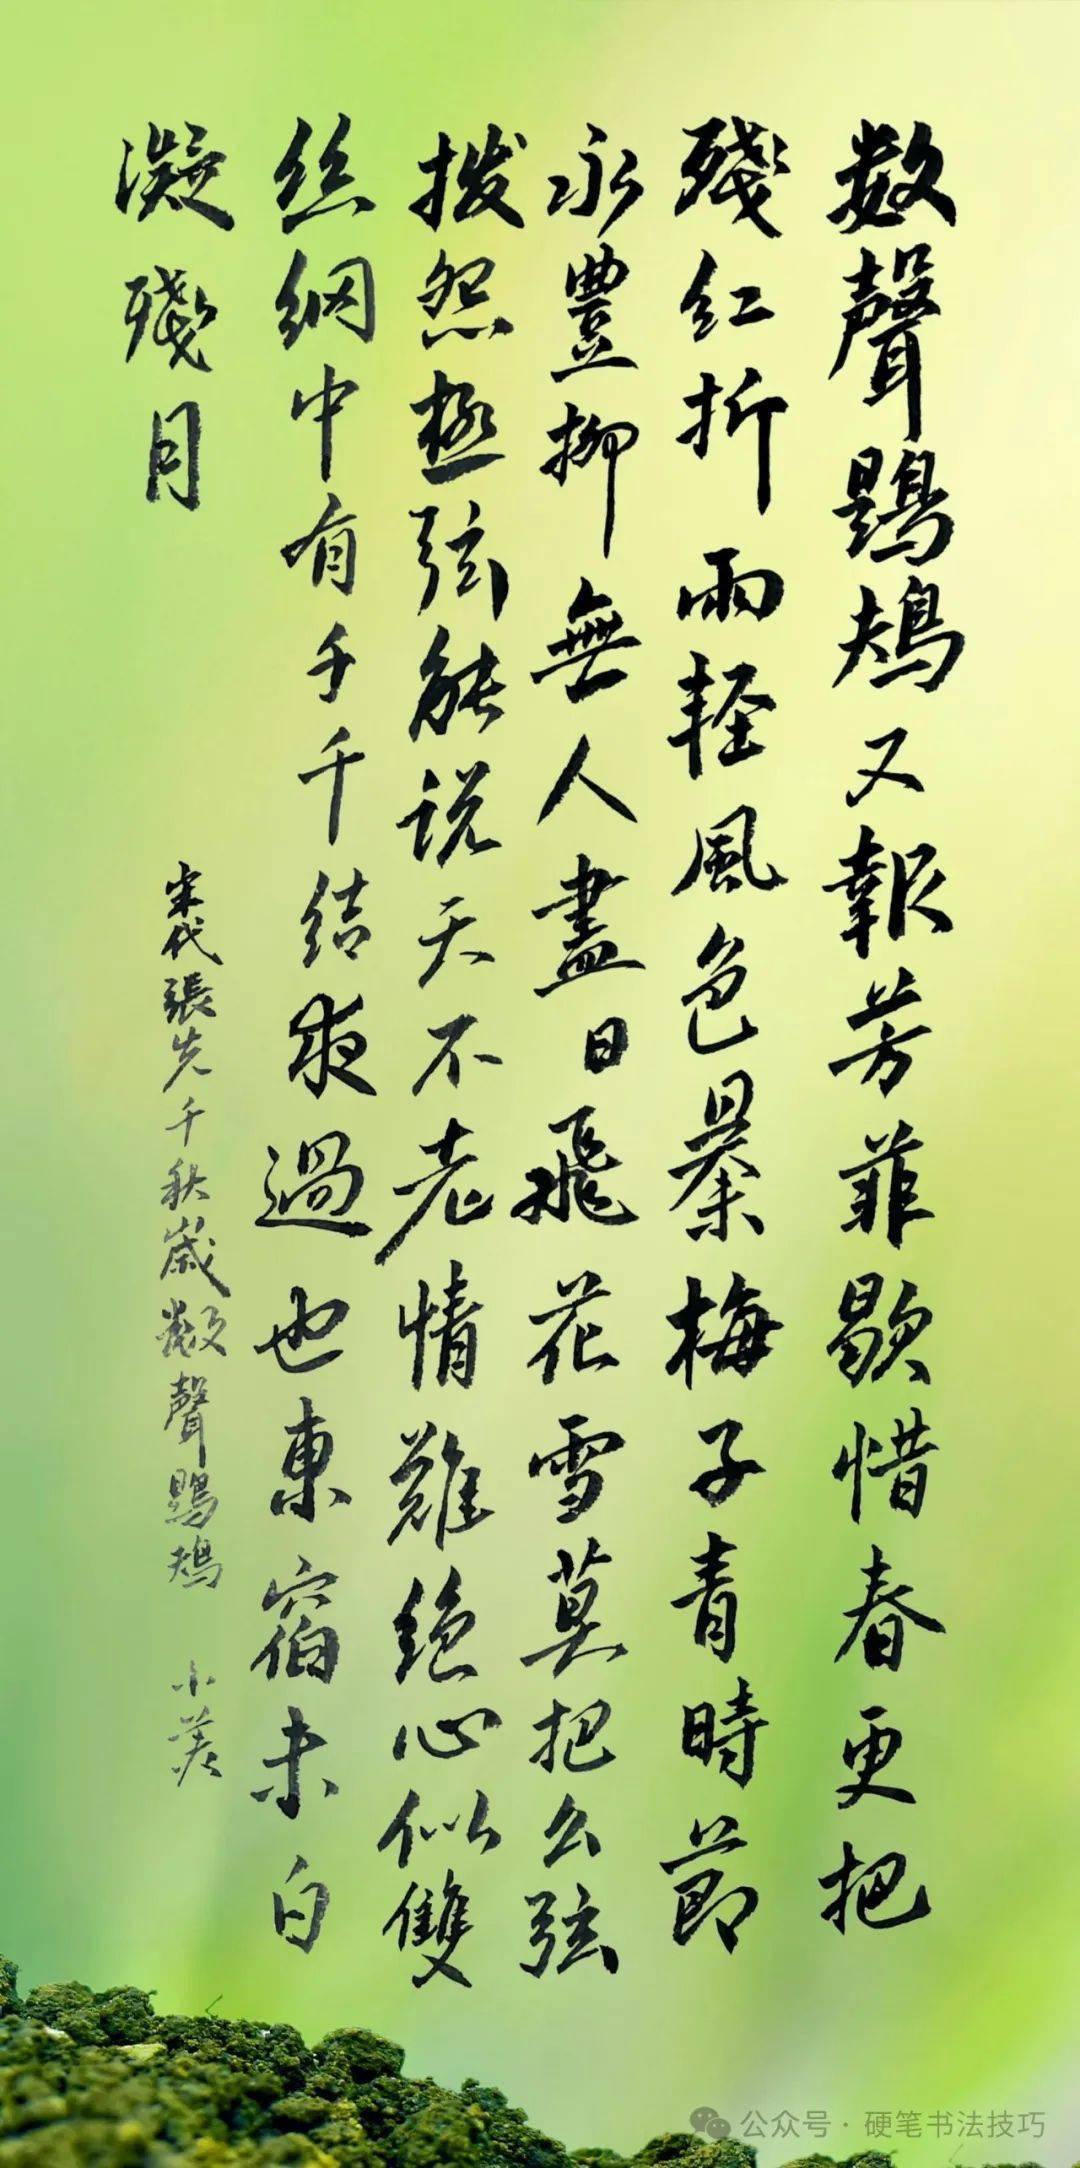 数聲鶗鴂又報芳菲歇惜春更把
殘红折雨軽風色暴梅子青時節
永豊柳無人盡日飛花雪莫把么弦
拨怨極弦能说天不老情難絶心似雙
絲網中有千千結夜過也東窗未白
凝殘月
宋代張先千秋歲数聲鶗鴂 小美
公众号·硬笔书法技巧